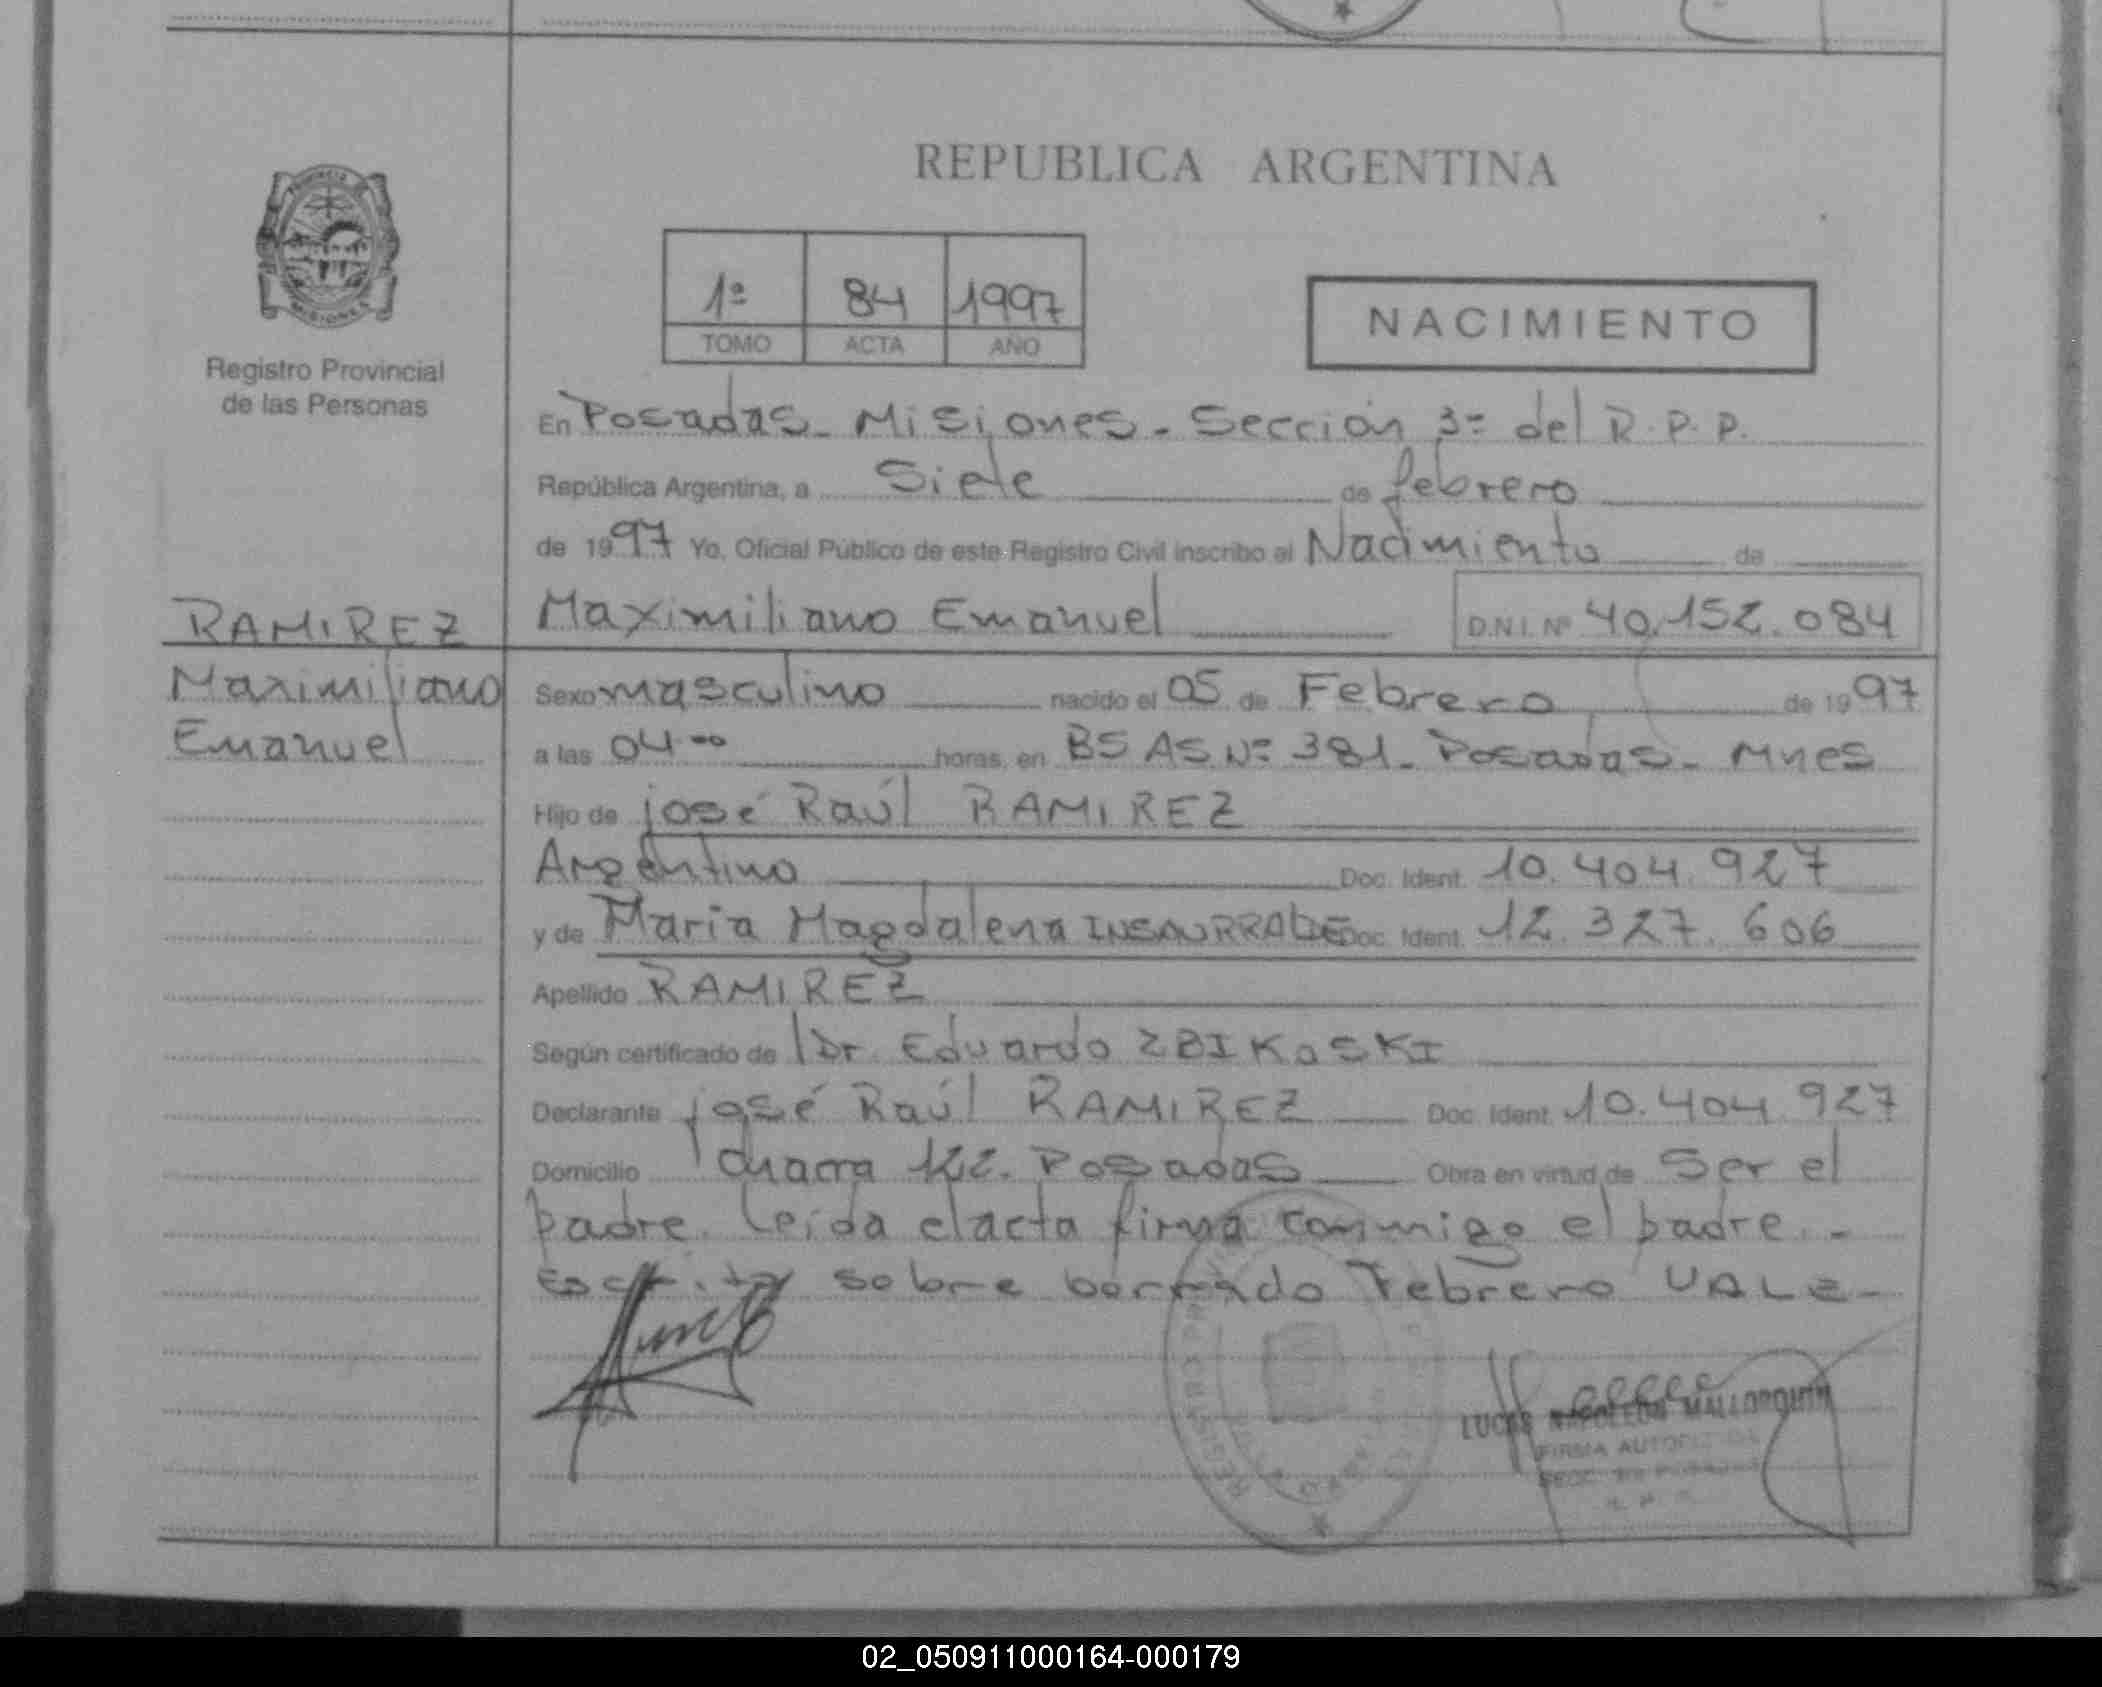 REPUBLICA ARGENTINA
PROVINCIA DE
MISIONES
Registro Provincial
de las Personas
1º 84 1997
TOMO ACTA AÑO
NACIMIENTO
En Posadas - Misiones - Sección 3º del R.P.P.
República Argentina, a Siete de febrero
de 1997 Yo, Oficial Público de este Registro Civil inscribo el Nacimiento de
RAMIREZ
Maximiliano
Emanuel
Maximiliano Emanuel D.N.I. Nº 40.152.084
Sexo masculino nacido el 05 de Febrero de 1997
a las 04.00 horas, en BS AS Nº 381 - Posadas - Mnes
Hijo de josé Raúl RAMIREZ
Argentino Doc. Ident. 10.404.927
y de Maria Magdalena INSAURRALDE Doc. Ident. 12.327.606
Apellido RAMIREZ
Según certificado de Dr. Eduardo ZBIKOSKI
Declarante josé Raúl RAMIREZ Doc. Ident. 10.404.927
Domicilio chacra 122. Posadas Obra en virtud de Ser el
padre. Leida el acta firma conmigo el padre. -
Escrito sobre borrado Febrero VALE -
LUCAS NAPOLEON MALLORQUIN
FIRMA AUTORIZADA
02_050911000164-000179